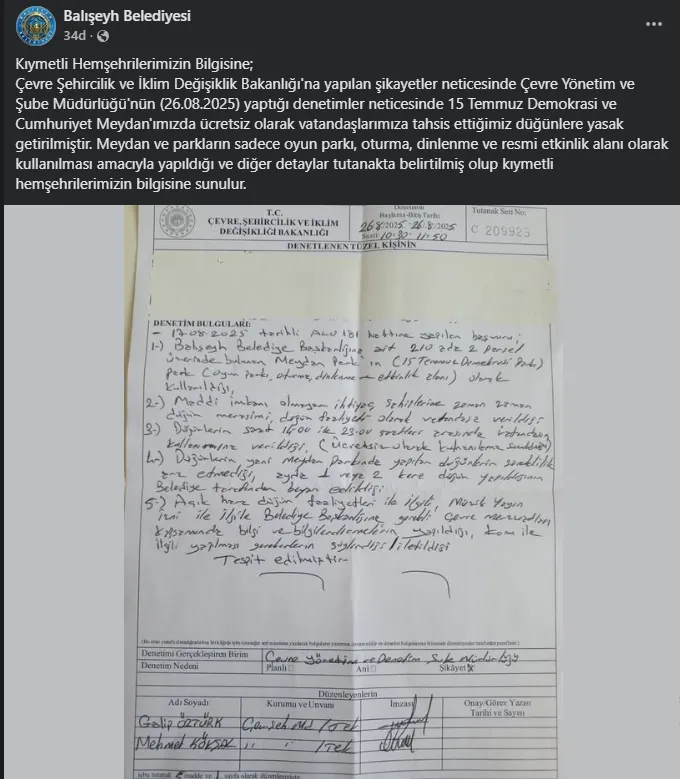 Balışeyh Belediyesi
34d
Kıymetli Hemşehrilerimizin Bilgisine;
Çevre Şehircilik ve İklim Değişiklik Bakanlığı'na yapılan şikayetler neticesinde Çevre Yönetim ve
Şube Müdürlüğü'nün (26.08.2025) yaptığı denetimler neticesinde 15 Temmuz Demokrasi ve
Cumhuriyet Meydan'ımızda ücretsiz olarak vatandaşlarımıza tahsis ettiğimiz düğünlere yasak
getirilmiştir. Meydan ve parkların sadece oyun parkı, oturma, dinlenme ve resmi etkinlik alanı olarak
kullanılması amacıyla yapıldığı ve diğer detaylar tutanakta belirtilmiş olup kıymetli
hemşehrilerimizin bilgisine sunulur.
T.C.
ÇEVRE, ŞEHİRCİLİK VE İKLİM
DEĞİŞİKLİĞİ BAKANLIĞI
Denetimin
Başlama-Bitiş Tarihi
26.8.2025-26.8/2025
Saati 10:30-11:50
Tutanak Seri No:
C 209923
DENETLENEN TÜZEL KİŞİNİN
DENETİM BULGULARI:
- 17.08.2025 tarihli ALO 181 hattına yapılan başvuru;
1-) Balışeyh Belediye Başkanlığına ait 210 ada 2 parsel
üzerinde bulunan Meydan Park'ın (15 Temmuz Demokrasi Parkı)
park (oyun parkı, oturma, dinlenme ve etkinlik alanı) olarak
kullanıldığı,
2-) Maddi imkanı olmayan ihtiyaç sahiplerine zaman zaman
düğün merasimi, düğün faaliyeti olarak verildiği
3-) Düğünlerin saat ile 23:00 saatleri arasında vatandaşın
kullanımına verildiği, (Ücretsiz olarak
4-) Düğünlerin yani Meydan Parkında yapılan düğünlerin süreklilik
arz etmediği, ayda 1 veya 2 kere düğün yapıldığının
Belediye tarafından beyan edildiği
5-) Açık hava düğün faaliyetleri ile ilgili, Müzik Yayın
izni ile ilgili Belediye Başkanlığına gerekli Çevre Mevzuatları
kapsamında bilgi ve bilgilendirmelerin yapıldığı, konu ile
ilgili yapılması gerekenlerin söylendiği / iletildiği
Tespit edilmiştir
Denetimi Gerçekleştiren Birim
Çevre Yönetimi ve Denetim Şube Müdürlüğü
Denetim Nedeni
Planlı
Ani
Şikayet X
Düzenleyenlerin
Adı Soyadı
Kurumu ve Unvanı
İmzası
Onay/Görev Yazısı
Tarihi ve Sayısı
Galip ÖZTÜRK
Çev.Şeh Md /Tek
Mehmet KÖKSAL
" " /Tek